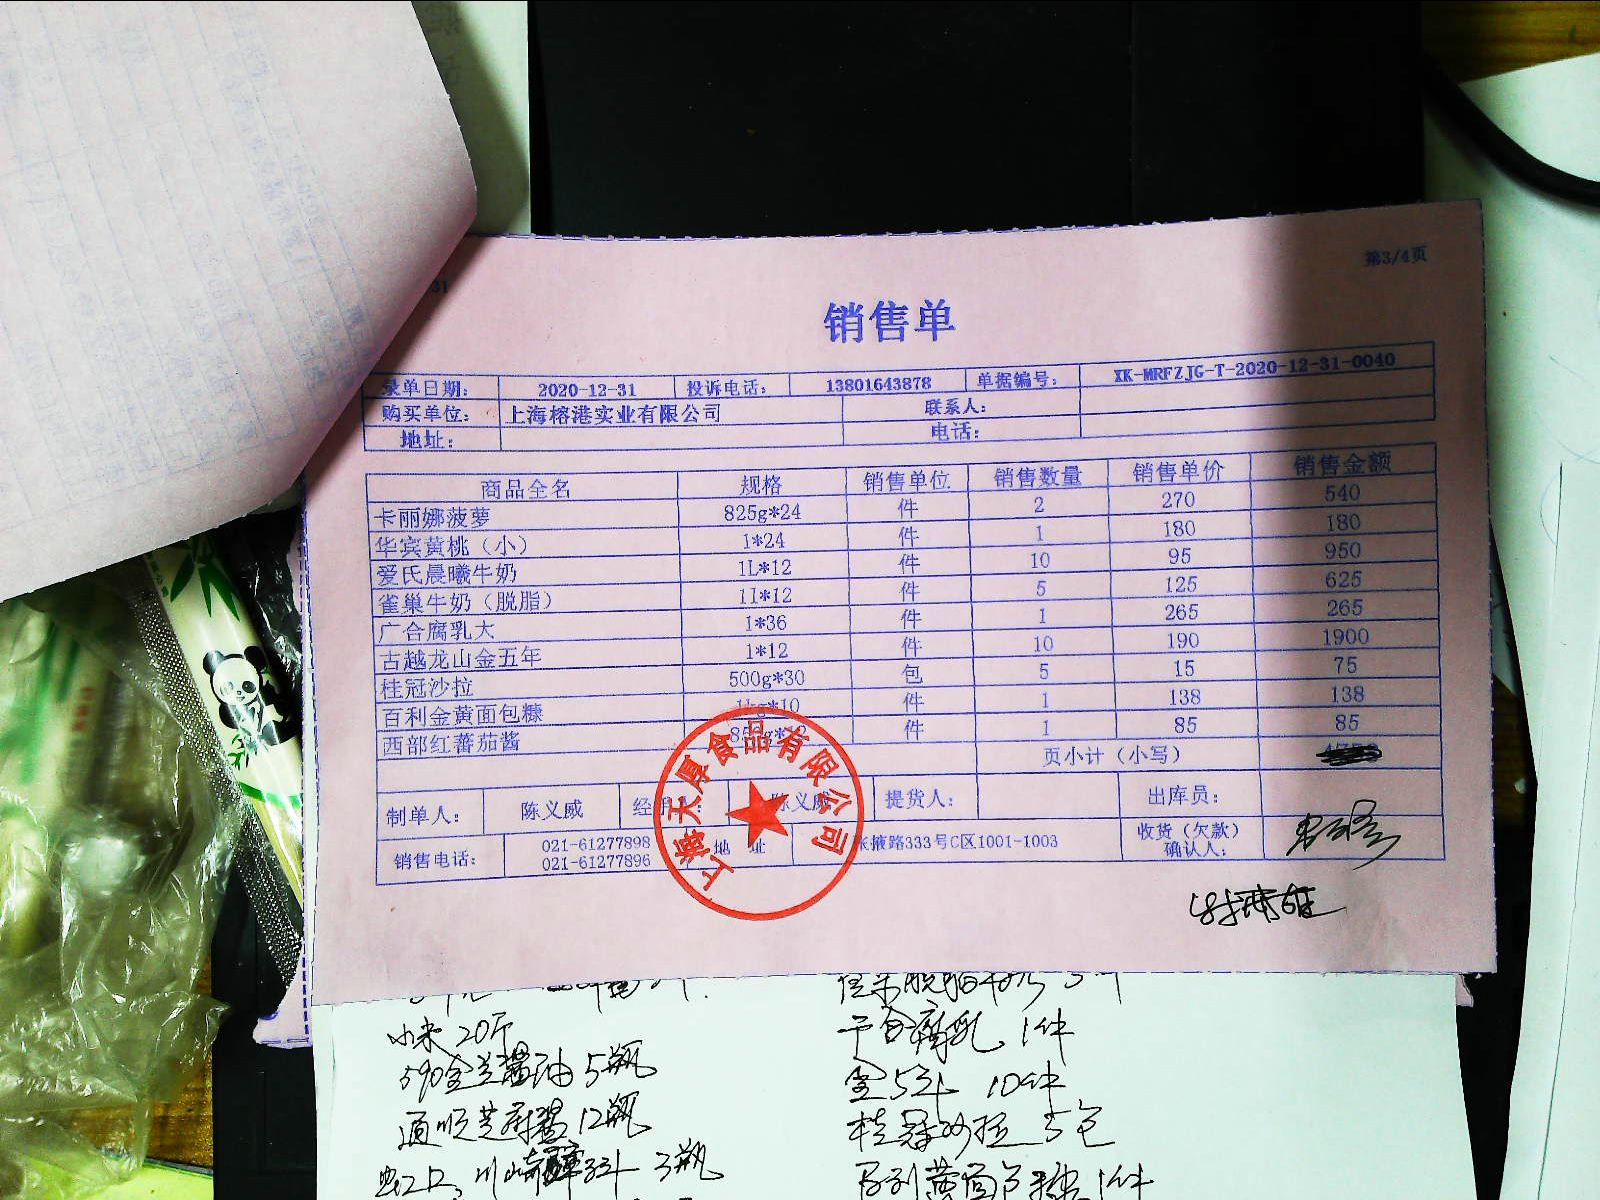 第3/4页
31
销售单
录单日期： 2020-12-31 投诉电话： 13801643878 单据编号： XK-MRFZJG-T-2020-12-31-0040
购买单位： 上海榕港实业有限公司 联系人：
地址： 电话：
商品全名 规格 销售单位 销售数量 销售单价 销售金额
卡丽娜菠萝 825g*24 件 2 270 540
华宾黄桃（小） 1*24 件 1 180 180
爱氏晨曦牛奶 1L*12 件 10 95 950
雀巢牛奶（脱脂） 1l*12 件 5 125 625
广合腐乳大 1*36 件 1 265 265
古越龙山金五年 1*12 件 10 190 1900
桂冠沙拉 500g*30 包 5 15 75
百利金黄面包糠 1kg*10 件 1 138 138
西部红蕃茄酱 件 1 85 85
页小计（小写）
制单人： 陈义威 经手人： 陈义威 提货人： 出库员：
销售电话： 021-61277898 地 址 张掖路333号C区1001-1003 收货（欠款）
021-61277896 确认人：
上海天厚食品有限公司
小米 20斤
590金兰酱油 5瓶
12瓶
3瓶
广合腐乳 1件
金5年 10件
桂冠沙拉 5包
百利黄面包糠 1件